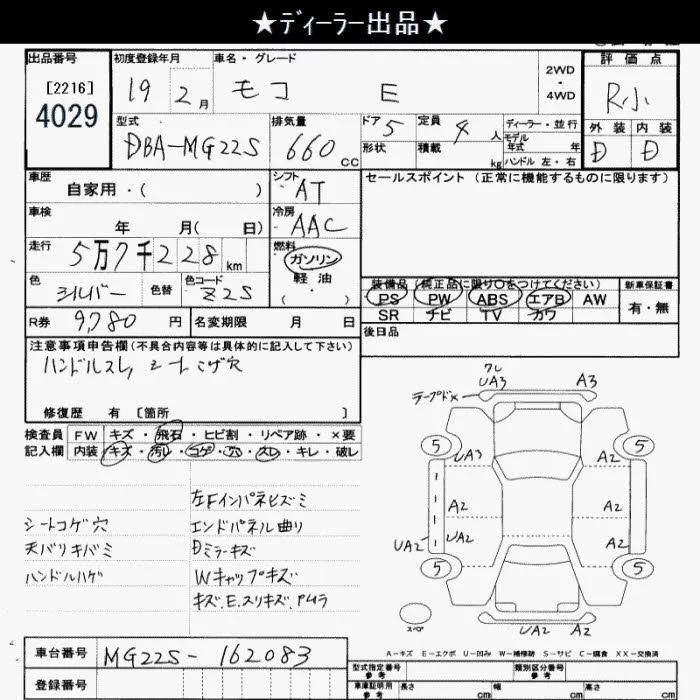 ★ディーラー出品★
出品番号
[2216]
4029
初度登録年月
19 2月
車名・グレード
モコ E
2WD
・
4WD
評価点
R小
外装 内装
D D
型式
DBA-MG22S
排気量
660 cc
ドア 5
形状
定員 4 人
積載 kg
ディーラー・並行
モデル
年式 年
ハンドル 左・右
車歴
自家用・( )
シフト
AT
セールスポイント (正常に機能するものに限ります)
車検
年 月( 日)
冷房
AAC
走行
5万7千228 km
燃料
ガソリン
軽油
( ・ )
色
シルバー
色替
色コード
Z2S
装備品 (純正品に限り○をつけてください)
PS PW ABS エアB AW
SR ナビ TV カワ
新車保証書
有・無
R券 9,780 円
名変期限 月 日
後日品
注意事項申告欄(不具合内容等は具体的に記入して下さい)
ハンドルスレ シートコゲ穴
修復歴 有 [箇所 ]
検査員
記入欄
FW キズ・飛石・ヒビ割・リペア跡・×要
内装 キズ・汚レ・コゲ・穴・スレ・キレ・破レ
左Fインパネヒズミ
シートコゲ穴 エンドパネル曲り
天バリキバミ Dミラーキズ
ハンドルハゲ Wキャップキズ
キズ.E.スリキズ.Pムラ
ワレ
UA3 A3
テープドメ
5 5
UA3 A2
A2 A2
UA2 UA2 A2
5 5
スペア
UA2 A2
A-キズ E-エクボ U-凹み W-補修跡 S-サビ C-腐食 XX-交換済
車台番号 MG22S-162083
登録番号
型式指定番号
参考
類別区分番号
参考
車庫証明用
参考
長さ cm
幅 cm
高さ cm